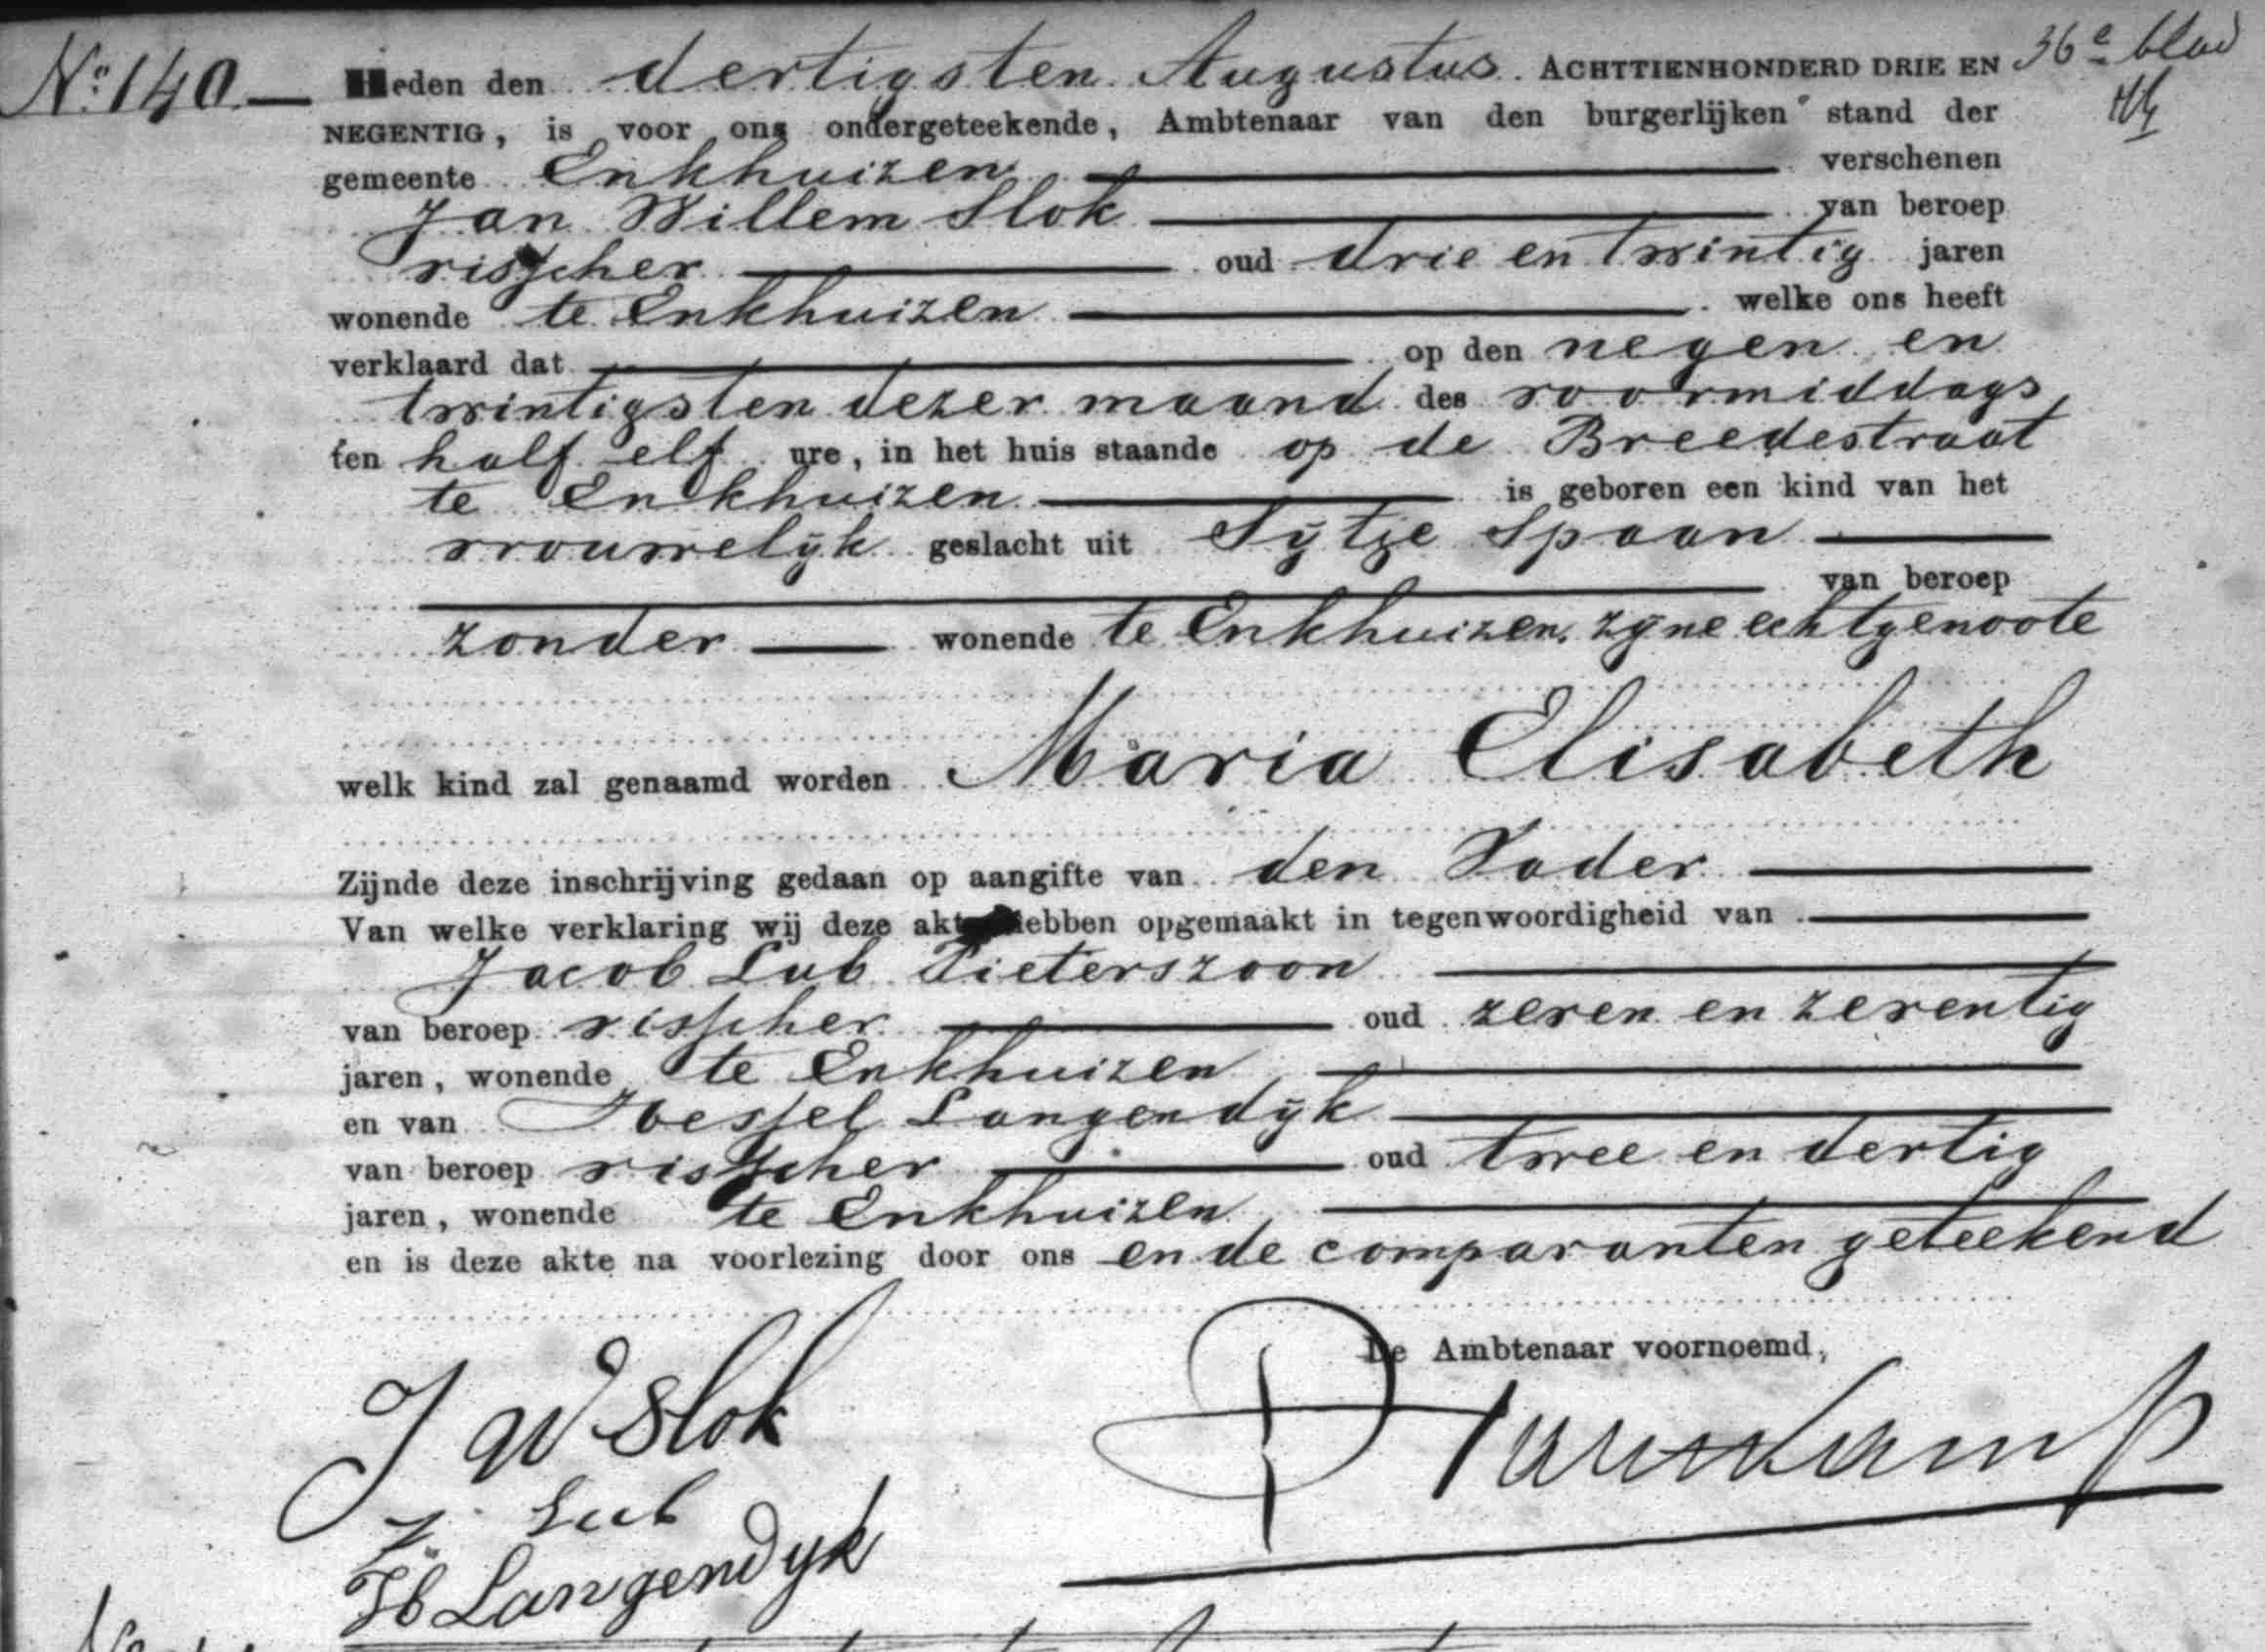 No. 140. — Heden den dertigsten Augustus. ACHTTIENHONDERD DRIE EN 36e blad
NEGENTIG, is voor ons ondergeteekende, Ambtenaar van den burgerlijken stand der
gemeente Enkhuizen verschenen
Jan Willem Slok van beroep
visscher oud drie en twintig jaren
wonende te Enkhuizen welke ons heeft
verklaard dat op den negen en
twintigsten dezer maand des voormiddags,
ten half elf ure, in het huis staande op de Breedestraat
te Enkhuizen is geboren een kind van het
vrouwelijk geslacht uit Sijtje Spaan
van beroep
zonder wonende te Enkhuizen, zijne echtgenoote
welk kind zal genaamd worden Maria Elisabeth
Zijnde deze inschrijving gedaan op aangifte van den Vader
Van welke verklaring wij deze akte hebben opgemaakt in tegenwoordigheid van
Jacob Lub Pieterszoon
van beroep visscher oud zeven en zeventig
jaren, wonende te Enkhuizen
en van Hessel Langendijk
van beroep visscher oud twee en dertig
jaren, wonende te Enkhuizen
en is deze akte na voorlezing door ons en de comparanten geteekend
De Ambtenaar voornoemd,
J W Slok
J. Lub
H Langendyk